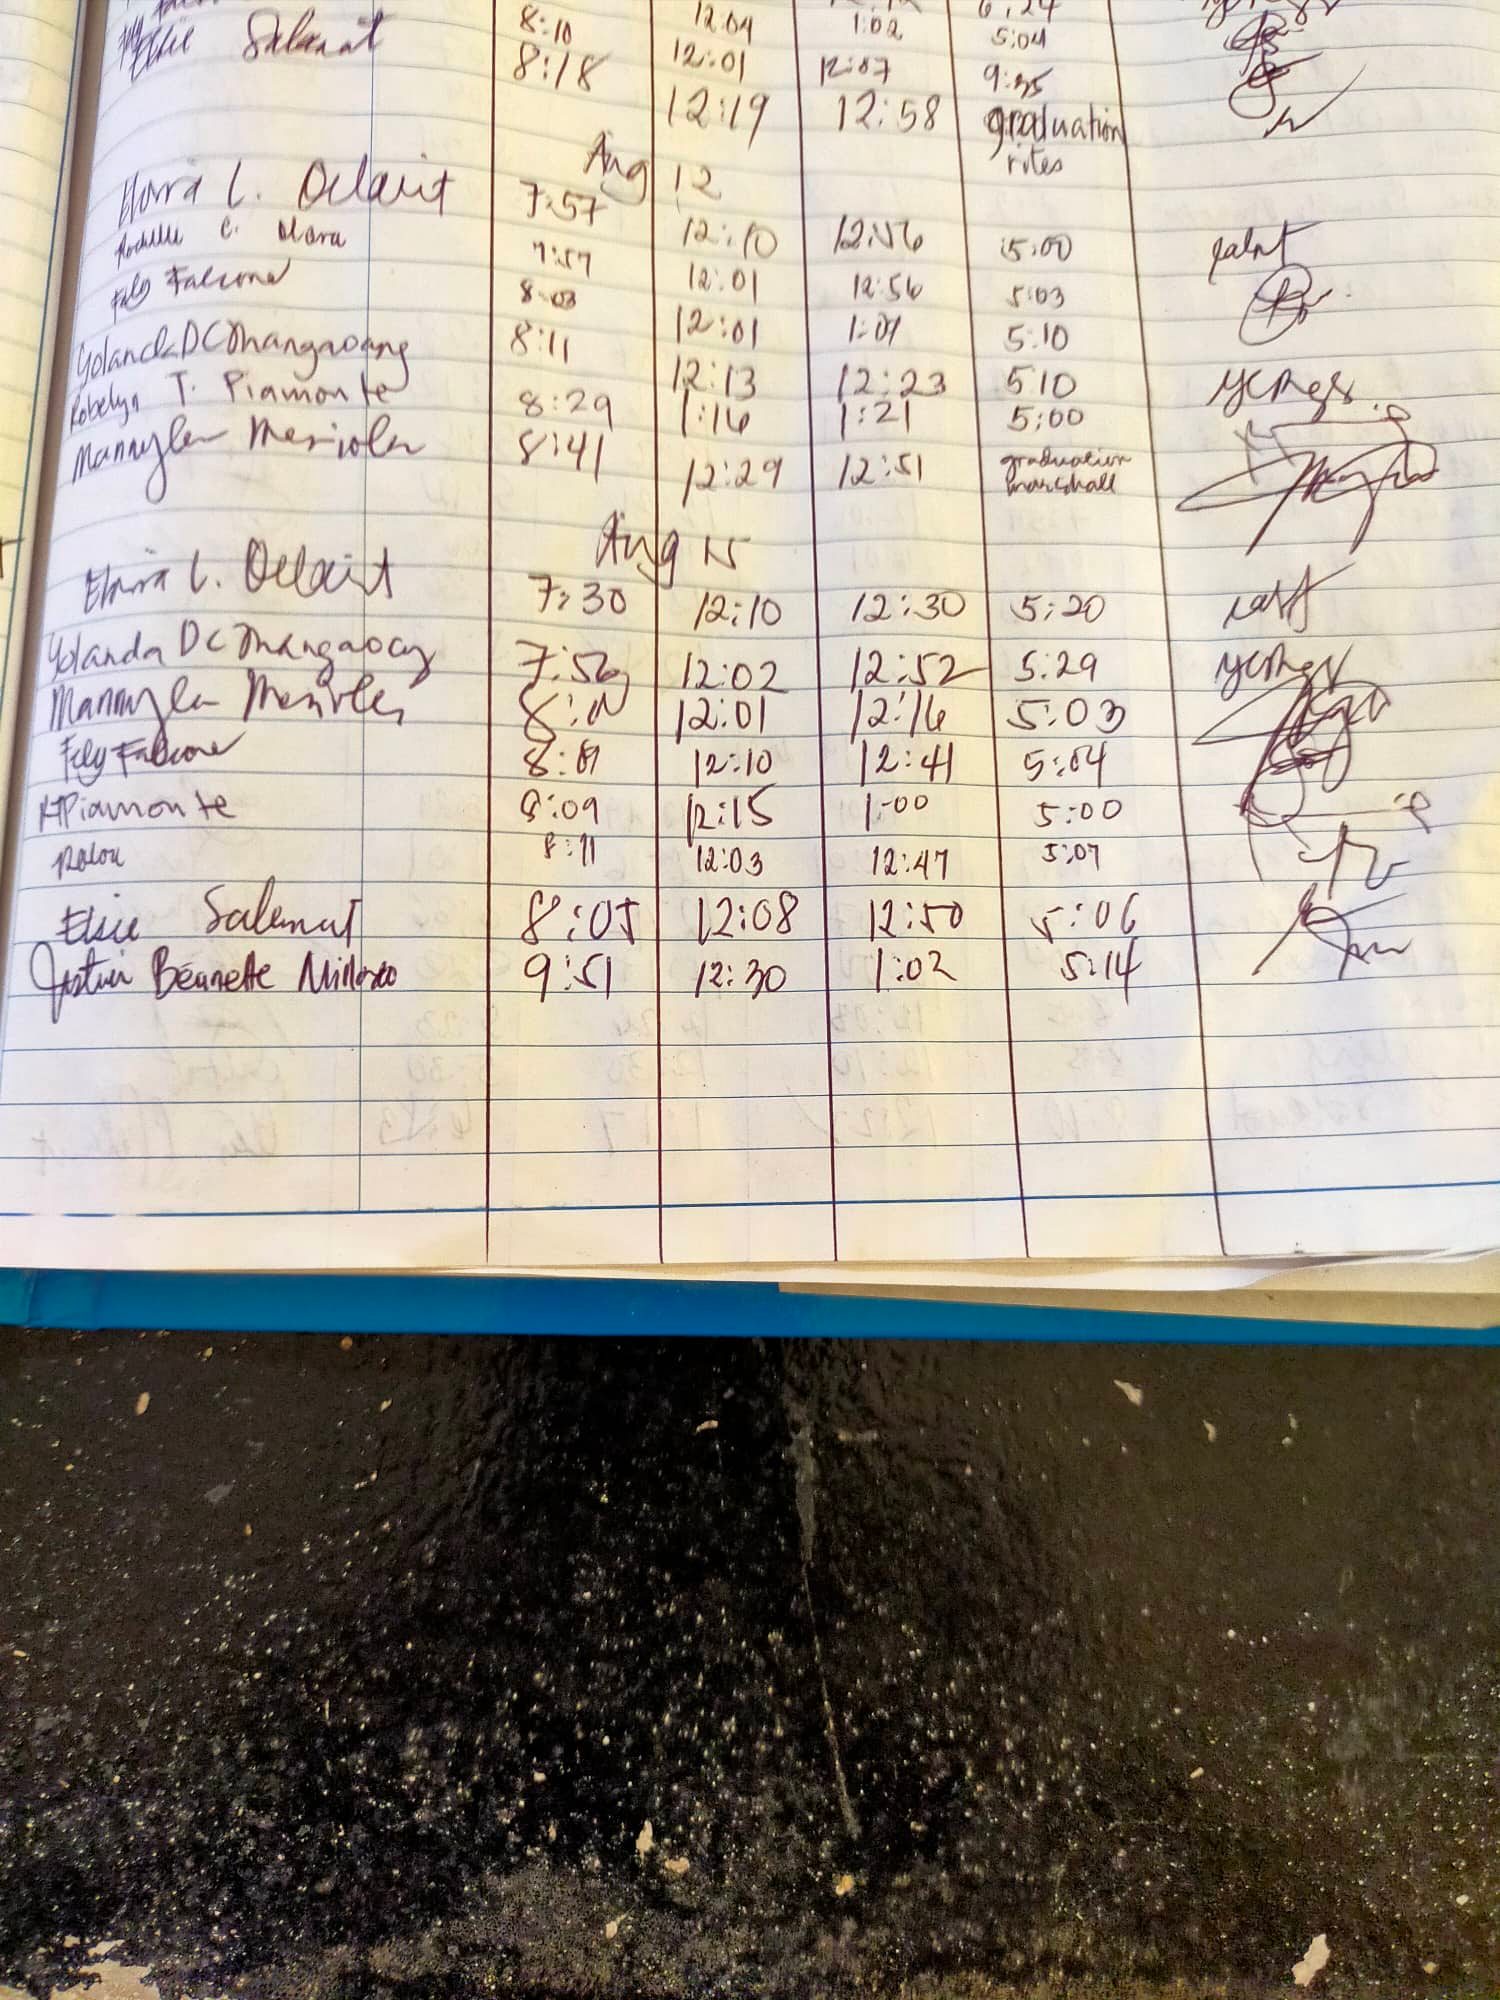 8:10 12:04 1:02 5:04
Elsie Salamat 8:18 12:01 12:07 9:35
12:19 12:58 graduation
rites
Aug 12
L. Delavit 7:57 12:10 12:56 5:00
Rochelle C. 7:57 12:01 12:56 5:03
Fely Falcone 8:03 12:01 1:01 5:10
Yolanda DC Mangaoang 8:11 12:13 12:23 5:10
Robelyn T. Piamonte 8:29 1:16 1:21 5:00
Mannylen 8:41 12:29 12:51 graduation
marshall
Aug 15
L. Delavit 7:30 12:10 12:30 5:20
Yolanda DC Mangaoang 7:56 12:02 12:52 5:29
Mannylen 12:01 12:16 5:03
Fely Falcone 8:01 12:10 12:41 5:04
RTPiamonte 8:09 12:15 1:00 5:00
8:11 12:03 12:47 5:07
Elsie Salamat 8:05 12:08 12:50 5:06
Bennette 9:51 12:30 1:02 5:14